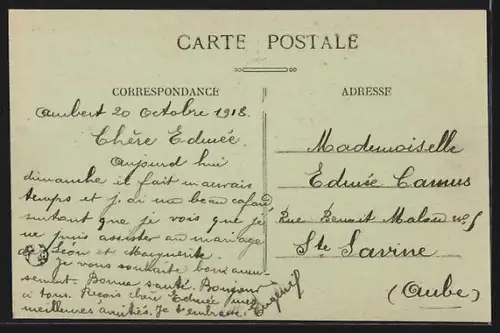 CARTE POSTALE
CORRESPONDANCE
ADRESSE
Ambert 20 Octobre 1918.
Chère Edmée.
Aujourd hui
dimanche il fait mauvais
temps et j ai un beau cafard
surtout que je vois que je
ne puis assister au mariage
Léon et Marguerite.
Je vous souhaite bon amu-
sement. Bonne santé. Bonjour
à tous. Reçois chère Edmée mes
meilleures amitiés. Je t'embrasse.
Eugène
Mademoiselle
Edmée Camus
Rue Benoit Malon no 5
Ste Savine
(Aube)